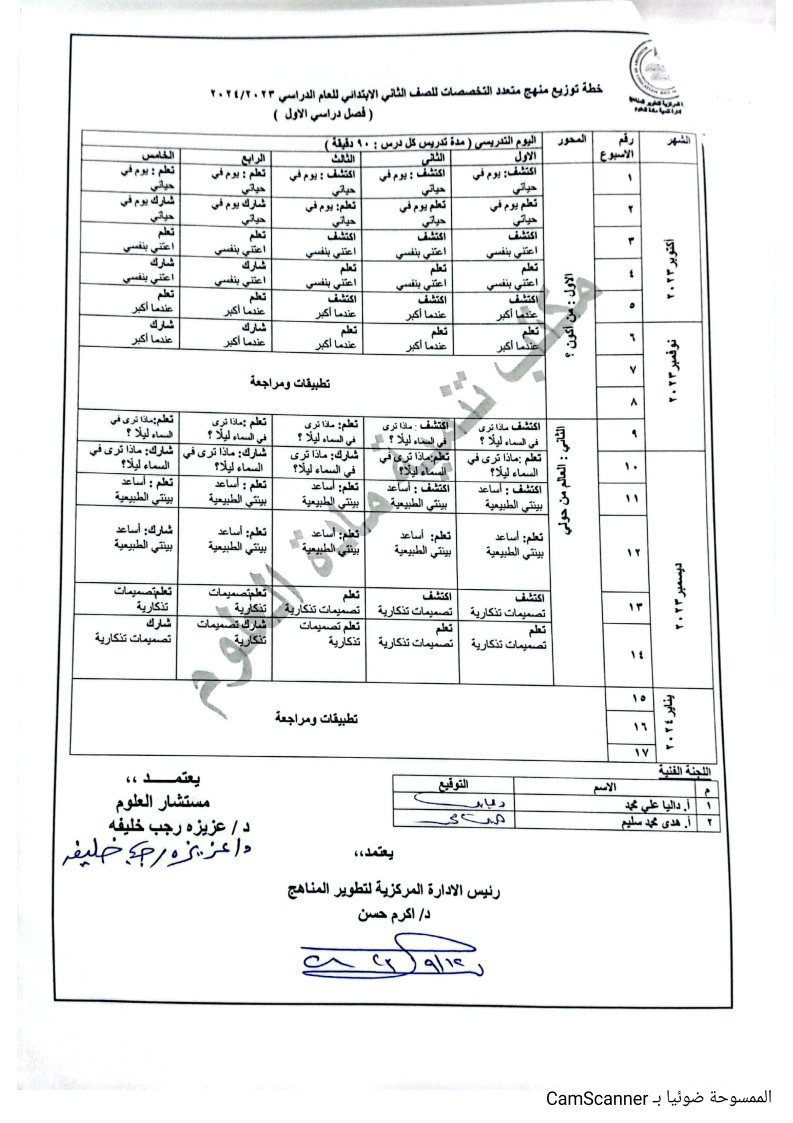 خطة توزيع منهج متعدد التخصصات للصف الثاني الابتدائي للعام الدراسي ٢٠٢٤/٢٠٢٣
( فصل دراسي الاول )
الشهر رقم الاسبوع المحور اليوم التدريسي ( مدة تدريس كل درس : ٩٠ دقيقة )
الاول الثاني الثالث الرابع الخامس
أكتوبر ٢٠٢٣
نوفمبر ٢٠٢٣
ديسمبر ٢٠٢٣
يناير ٢٠٢٤
الاول : من أكون ؟
الثاني : العالم من حولي
١ اكتشف: يوم في حياتي اكتشف : يوم في حياتي اكتشف : يوم في حياتي تعلم : يوم في حياتي تعلم : يوم في حياتي
٢ تعلم يوم في حياتي تعلم يوم في حياتي تعلم: يوم في حياتي شارك يوم في حياتي شارك يوم في حياتي
٣ اكتشف اعتني بنفسي اكتشف اعتني بنفسي اكتشف اعتني بنفسي تعلم اعتني بنفسي تعلم اعتني بنفسي
٤ تعلم اعتني بنفسي تعلم اعتني بنفسي تعلم اعتني بنفسي شارك اعتني بنفسي شارك اعتني بنفسي
٥ اكتشف عندما أكبر اكتشف عندما أكبر اكتشف عندما أكبر تعلم عندما أكبر تعلم عندما أكبر
٦ تعلم عندما أكبر تعلم عندما أكبر تعلم عندما أكبر شارك عندما أكبر شارك عندما أكبر
٧ تطبيقات ومراجعة
٨
٩ اكتشف ماذا ترى في السماء ليلًا ؟ اكتشف : ماذا ترى في السماء ليلًا ؟ تعلم: ماذا ترى في السماء ليلًا ؟ تعلم: ماذا ترى في السماء ليلًا ؟ تعلم:ماذا ترى في السماء ليلًا ؟
١٠ تعلم: ماذا ترى في السماء ليلًا؟ تعلم: ماذا ترى في السماء ليلًا؟ شارك: ماذا ترى في السماء ليلًا؟ شارك: ماذا ترى في السماء ليلًا؟ شارك: ماذا ترى في السماء ليلًا؟
١١ اكتشف : أساعد بيئتي الطبيعية اكتشف : أساعد بيئتي الطبيعية تعلم: أساعد بيئتي الطبيعية تعلم : أساعد بيئتي الطبيعية تعلم : أساعد بيئتي الطبيعية
١٢ تعلم: أساعد بيئتي الطبيعية تعلم: أساعد بيئتي الطبيعية تعلم: أساعد بيئتي الطبيعية تعلم: أساعد بيئتي الطبيعية شارك: أساعد بيئتي الطبيعية
١٣ اكتشف تصميمات تذكارية اكتشف تصميمات تذكارية تعلم تصميمات تذكارية تعلم:تصميمات تذكارية تعلم:تصميمات تذكارية
١٤ تعلم تصميمات تذكارية تعلم تصميمات تذكارية تعلم تصميمات تذكارية شارك تصميمات تذكارية شارك تصميمات تذكارية
١٥
١٦ تطبيقات ومراجعة
١٧
مكتب تنمية مادة العلوم
اللجنة الفنية
م الاسم التوقيع
١ أ. داليا علي محمد
٢ أ. هدى محمد سليم
يعتمـــــد ،،
مستشار العلوم
د/ عزيزه رجب خليفه
د/ عزيزه رجب خليفه
يعتمد،،
رئيس الادارة المركزية لتطوير المناهج
د/ اكرم حسن
الممسوحة ضوئيا بـ CamScanner